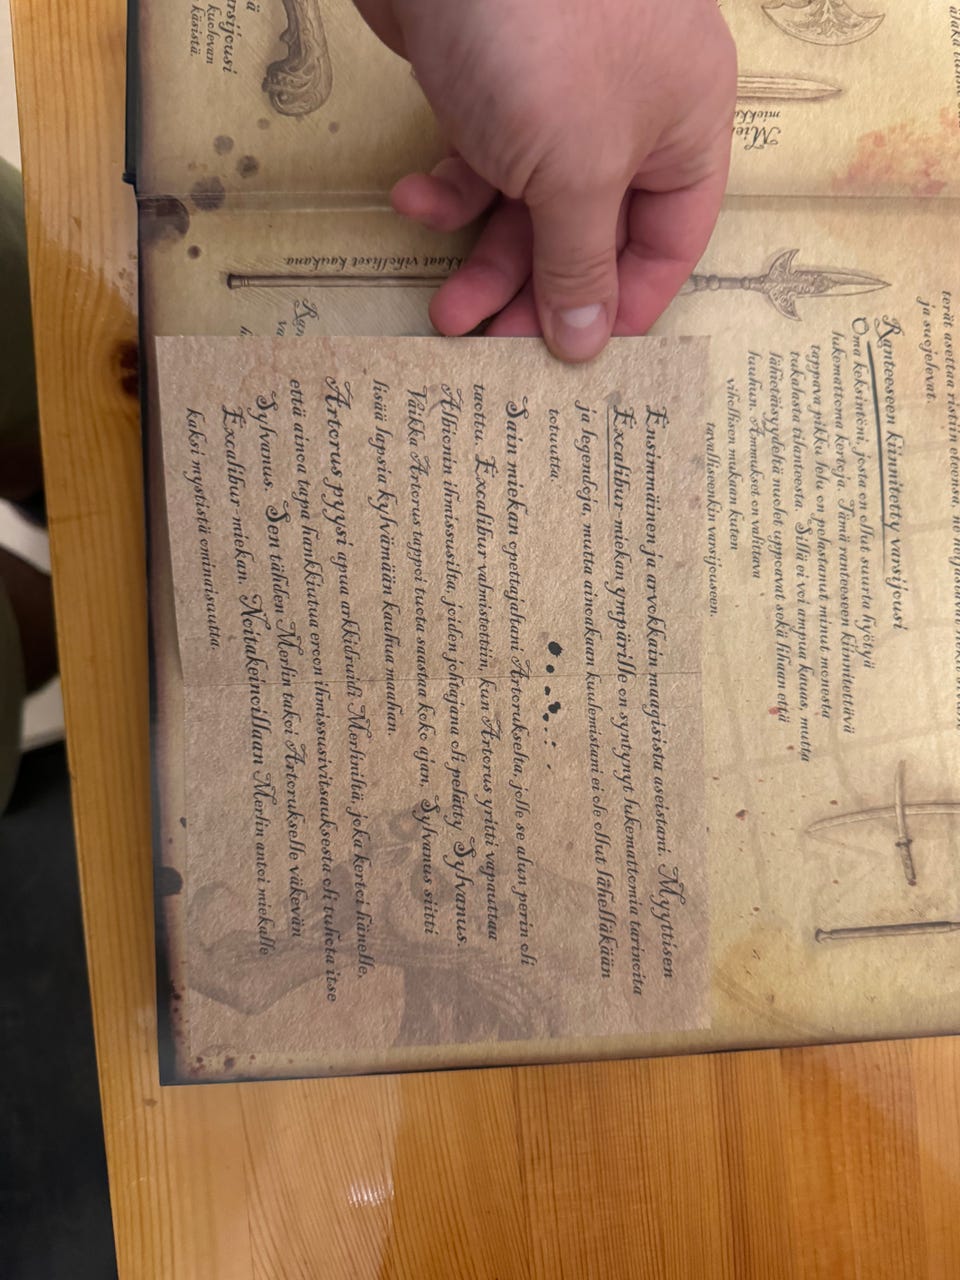 terät asettaa ristiin eteensä, ne
ja suojelevat.
Ranteeseen kiinnitetty varsijousi
Oma keksintöni, josta on ollut suurta hyötyä
lukemattomia kertoja. Tämä ranteeseen kiinnitettävä
tappava pikku lelu on pelastanut minut monesta
tukalasta tilanteesta. Sillä ei voi ampua kauas, mutta
lähietäisyydeltä nuolet uppoavat sekä lihaan että
luuhun. Ammukset on valittava
vihollisen mukaan kuten
tavalliseenkin varsijouseen.
Ensimmäinen ja arvokkain maagisista aseistani. Myyttisen
Excalibur-miekan ympärille on syntynyt lukemattomia tarinoita
ja legendoja, mutta ainoakaan kuulemistani ei ole ollut lähelläkään
totuutta.
Sain miekan opettajaltani Artorukselta, jolle se alun perin oli
taottu. Excalibur valmistettiin, kun Artorus yritti vapauttaa
Albionin ihmissusilta, joiden johtajana oli pelätty Sylvanus.
Vaikka Artorus tappoi tuota saastaa koko ajan, Sylvanus siitti
lisää lapsia kylvämään kauhua maahan.
Artorus pyysi apua arkkidruidi Merliniltä, joka kertoi hänelle,
että ainoa tapa hankkiutua eroon ihmissusivitsauksesta oli tuhota itse
Sylvanus. Sen tähden Merlin takoi Artorukselle väkevän
Excalibur-miekan. Noitakeinoillaan Merlin antoi miekalle
kaksi mystistä ominaisuutta.
vihelliset kaukana
varsijousi
kuolevan
käsistä.